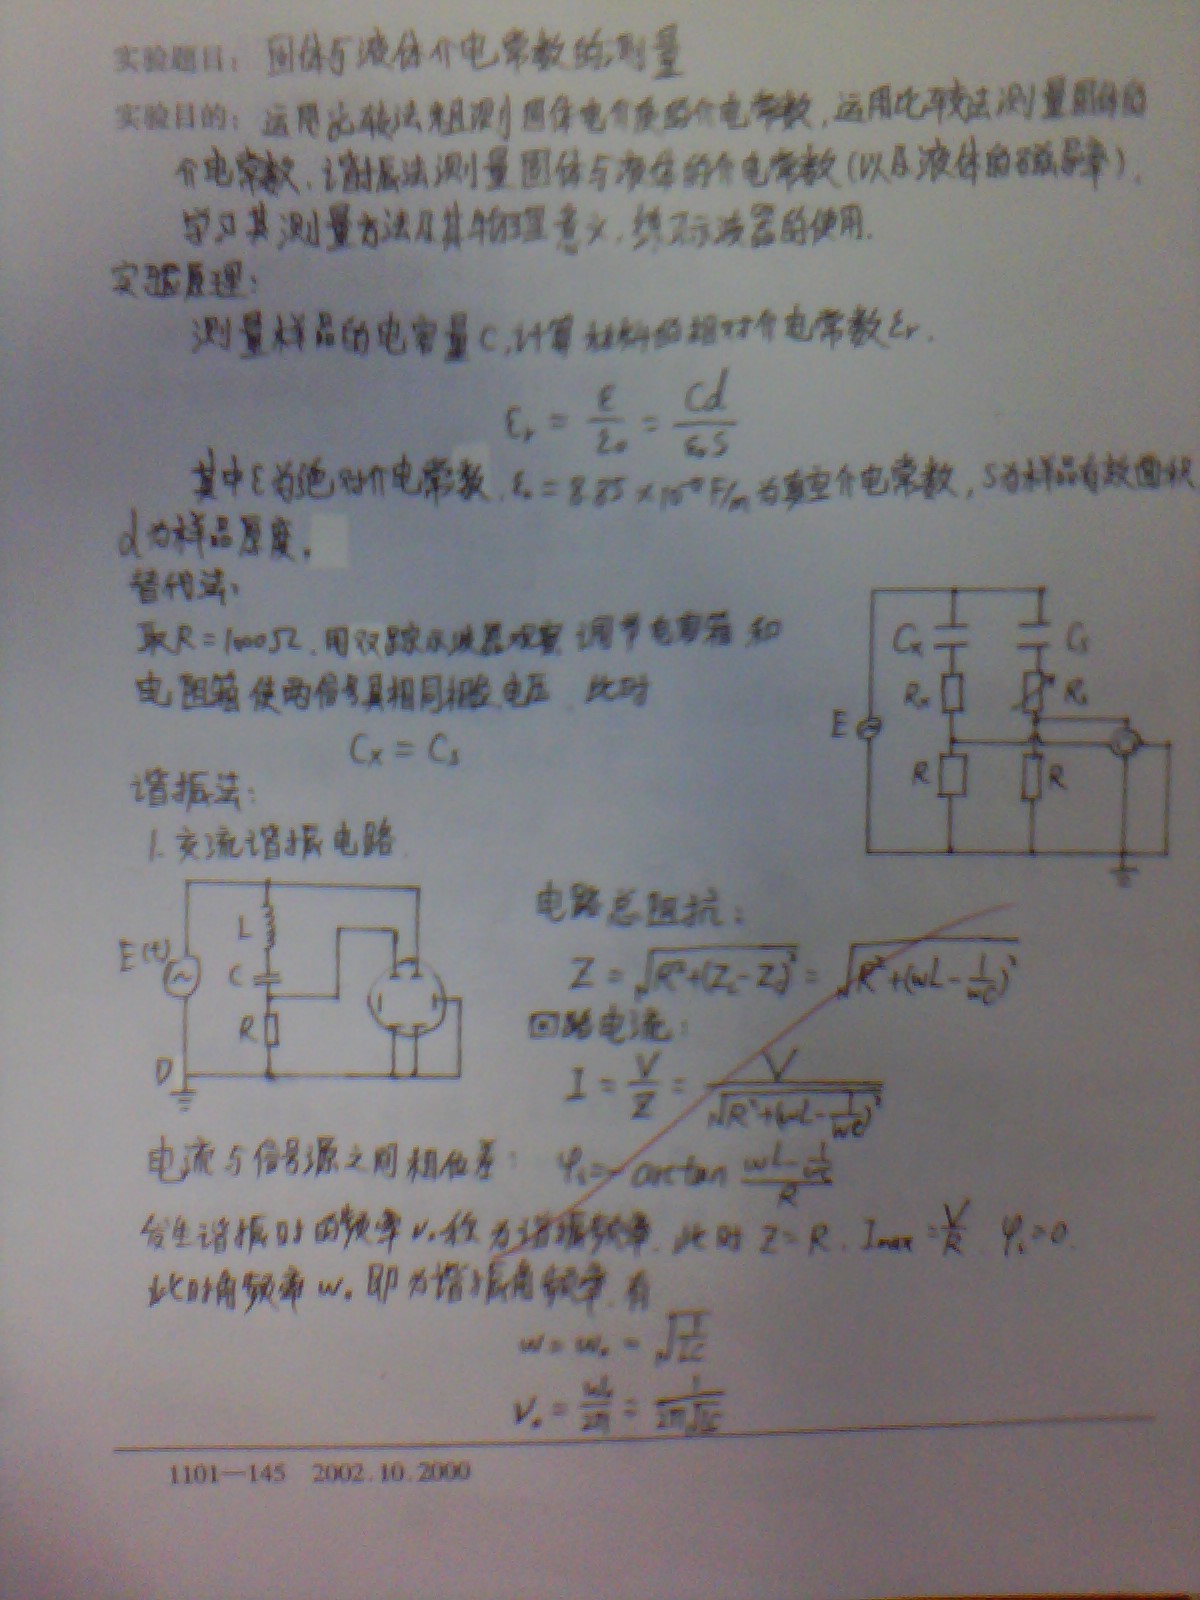 实验题目: 固体与液体介电常数的测量
实验目的: 运用比较法粗测固体电介质的介电常数,运用比较法测量固体的
介电常数,谐振法测量固体与液体的介电常数(以及液体的磁导率),
学习其测量方法及其物理意义,练习示波器的使用.
实验原理:
测量样品的电容量C,计算材料的相对介电常数εr.
εr = ε/ε₀ = Cd/ε₀S
其中ε为绝对介电常数,ε₀=8.85×10 F/m为真空介电常数,S为样品有效面积
d为样品厚度.
替代法:
取R=1000Ω,用双踪示波器观察,调节电容箱和
电阻箱使两信号具相同相位、电压,此时
Cx = Cs
Cx Cs
Rx Rs
E
R R
谐振法:
1.交流谐振电路
E(t)
L
C
R
D
电路总阻抗:
Z = √(R²+(Z_L-Z_C)²) = √(R²+(wL-1/wC)²)
回路电流:
I = V/Z = V/√(R²+(wL-1/wC)²)
电流与信号源之间相位差: φi=-arctan (wL-1/wC)/R
发生谐振时的频率ν₀称为谐振频率,此时Z=R, Imax=V/R, φi=0.
此时角频率w₀即为谐振角频率,有
w = w₀ = √(1/LC)
ν₀ = w₀/2π = 1/2π√LC
1101—145 2002.10.2000